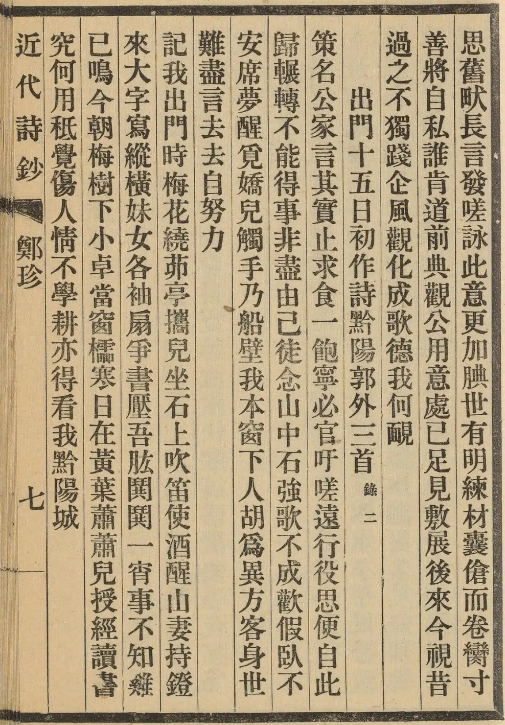 思舊畎長言發嗟詠此意更加腆世有明練材囊傖而卷臠寸
善將自私誰肯道前典觀公用意處已足見敷展後來今視昔
過之不獨踐企風觀化成歌德我何靦
出門十五日初作詩黔陽郭外三首 錄二
策名公家言其實止求食一飽寧必官吁嗟遠行役思便自此
歸輾轉不能得事非盡由己徒念山中石強歌不成歡假臥不
安席夢醒覓嬌兒觸手乃船壁我本窗下人胡爲異方客身世
難盡言去去自努力
記我出門時梅花繞茆亭攜兒坐石上吹笛使酒醒山妻持鐙
來大字寫縱橫妹女各袖扇爭書壓吾肱鬨鬨一宵事不知雞
已鳴今朝梅樹下小卓當窗櫺寒日在黃葉蕭蕭兒授經讀書
究何用秪覺傷人情不學耕亦得看我黔陽城
近代詩鈔 鄭珍 七